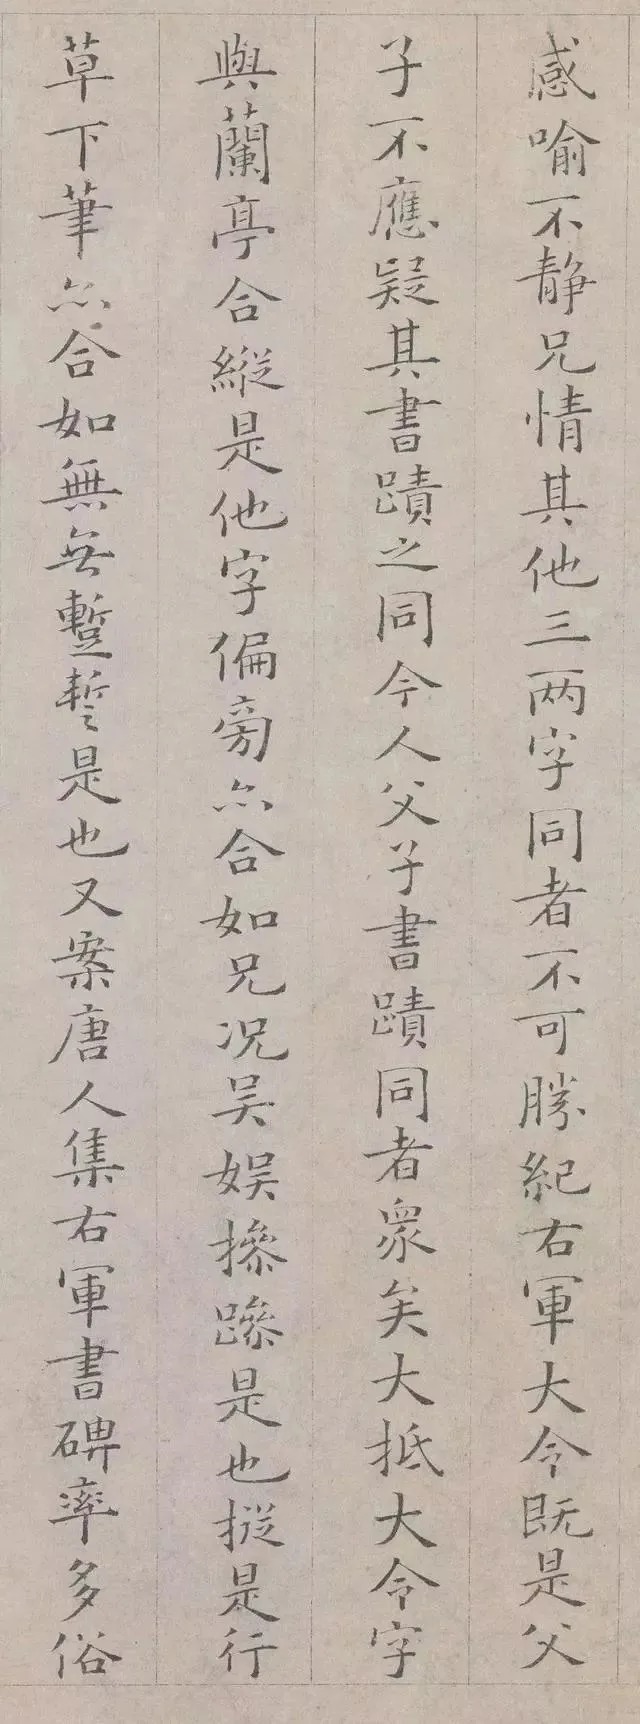 感喻不静兄情其他三两字同者不可勝紀右軍大令既是父
子不應疑其書蹟之同今人父子書蹟同者衆矣大抵大令字
與蘭亭合縱是他字偏旁亦合如兄况吴娱摻蹤是也摐是行
草下筆亦合如無無蹔誓是也又案唐人集右軍書碑率多俗